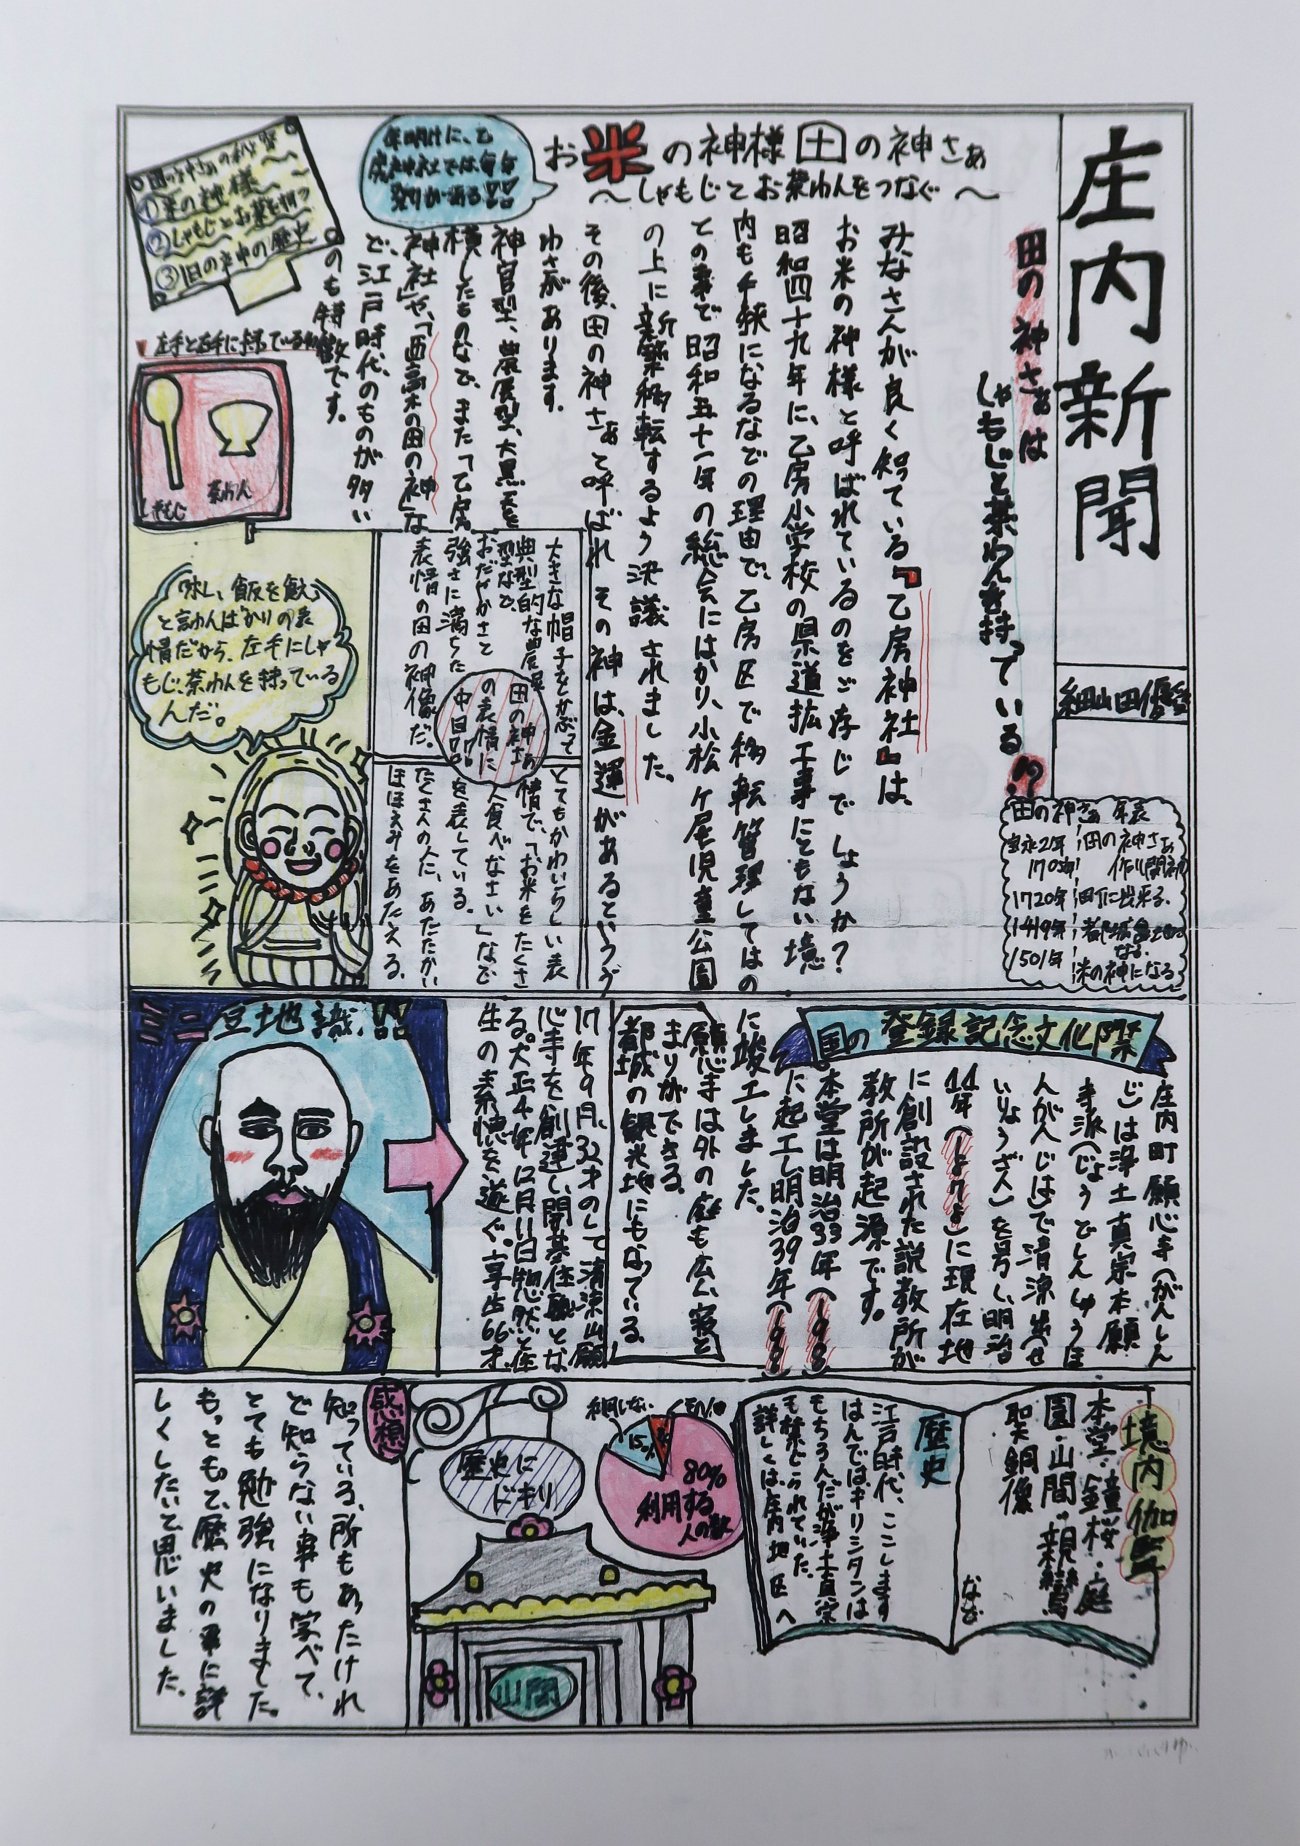 庄内新聞
田の神さぁは
しゃもじと茶わんを持っている!?
お米の神様田の神さぁ
〜しゃもじとお茶わんをつなぐ〜
みなさんが良く知っている『乙房神社』は、
お米の神様と呼ばれているのをご存じでしょうか?
昭和四十九年に、乙房小学校の県道拡工事にともない境
内も手狭になるなどの理由で、乙房区で移転管理しては
との事で昭和五十一年の総会にはかり、小松ケ尾児童公園
の上に新築移転するよう決議されました。
その後、田の神さぁと呼ばれその神は、金運があるという
わさがあります。
神官型、農民型、大黒天を
模したものなど、また「乙房
神社」や、「西高木の田の神」な
ど、江戸時代のものが多い
のも特徴です。
年明けに、乙
房神社では毎年
祭りがある!!
①米の神様
②しゃもじとお茶を持つ
③1日の中の歴史
左手と右手に持っている物
しゃもじ
茶わん
と言わんばかりの表
情だから、左手にしゃ
もじ、茶わんを持っている
んだ。
大きな帽子をかぶって
典型的な農民
型など、
おだやかさと
強さに満ちた
表情の田の神像だ。
田の神さぁ
の表情に
注目!!
とてもかわいらしい表
情で、「お米をたくさ
ん食べなさい」など
を表している。
たくさんの人に、あたたかい
ほほえみをあたえる。
田の神さぁ 年表
1720年 町に出来る。
1419年
1501年 米の神になる
国の登録記念文化際
庄内町願心寺(がんしん
じ)は浄土真宗本願
寺派(じょうどしんしゅうほ
んがんじは)で清涼山(せ
いりょうざん)を号し、明治
44年に現在地
に創設された説教所が
教所が起源です。
本堂は明治33年(198
に起工し明治39年(198
に竣工しました。
願心寺は外の庭も広い、寝と
まりができる。
都城の観光地にもなっている。
ミニ豆地識!!
17年9月、32才のして清涼山願
心寺を創建し開基住職とな
る。大正4年12月11日悠然と往
生の素懐を遂ぐ。享年66才。
境内伽藍
本堂・鐘桜・庭
園・山間・親鸞
聖人銅像
など
歴史
江戸時代、ここします
はんではキリシタンは
もちろんだが浄土真宗
も禁じられていた。
詳しくは、庄内地区へ
80%
利用する
人の数
15%
利用しない
歴史に
じまり
山間
感想
知っている所もあったけれ
ど知らない事も学べて、
とても勉強になりました。
もっともって、歴史の事に詳
しくしたいと思いました。